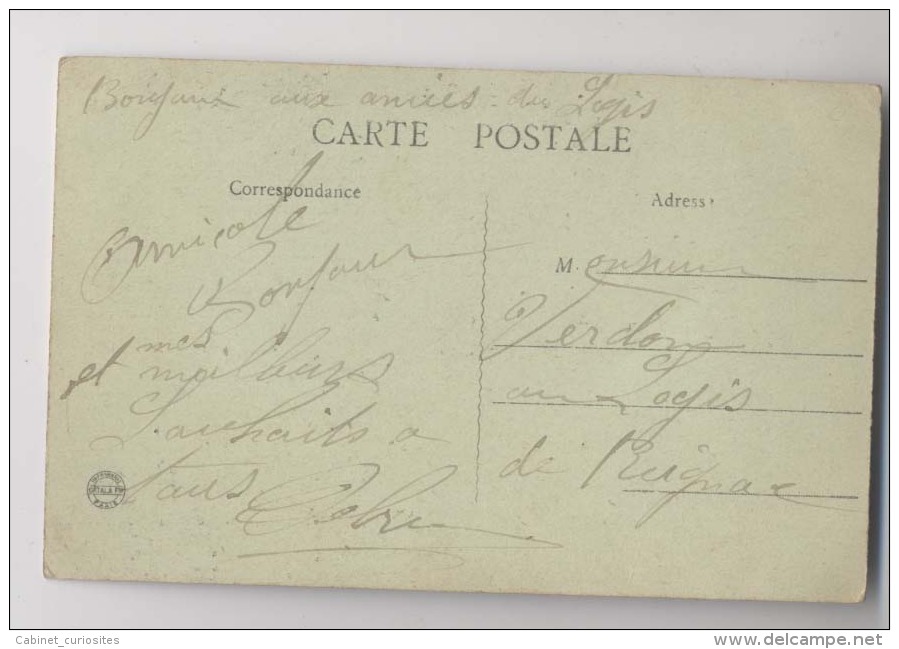 Bonjour aux amies du Logis
CARTE POSTALE
Correspondance
Adresse
Amicale
Bonjour
et mes
meilleurs
Souhaits a
tous
M onsieur
Verdon
au Logis
de Reignac
Cabinet_curiosites
www.delcampe.net